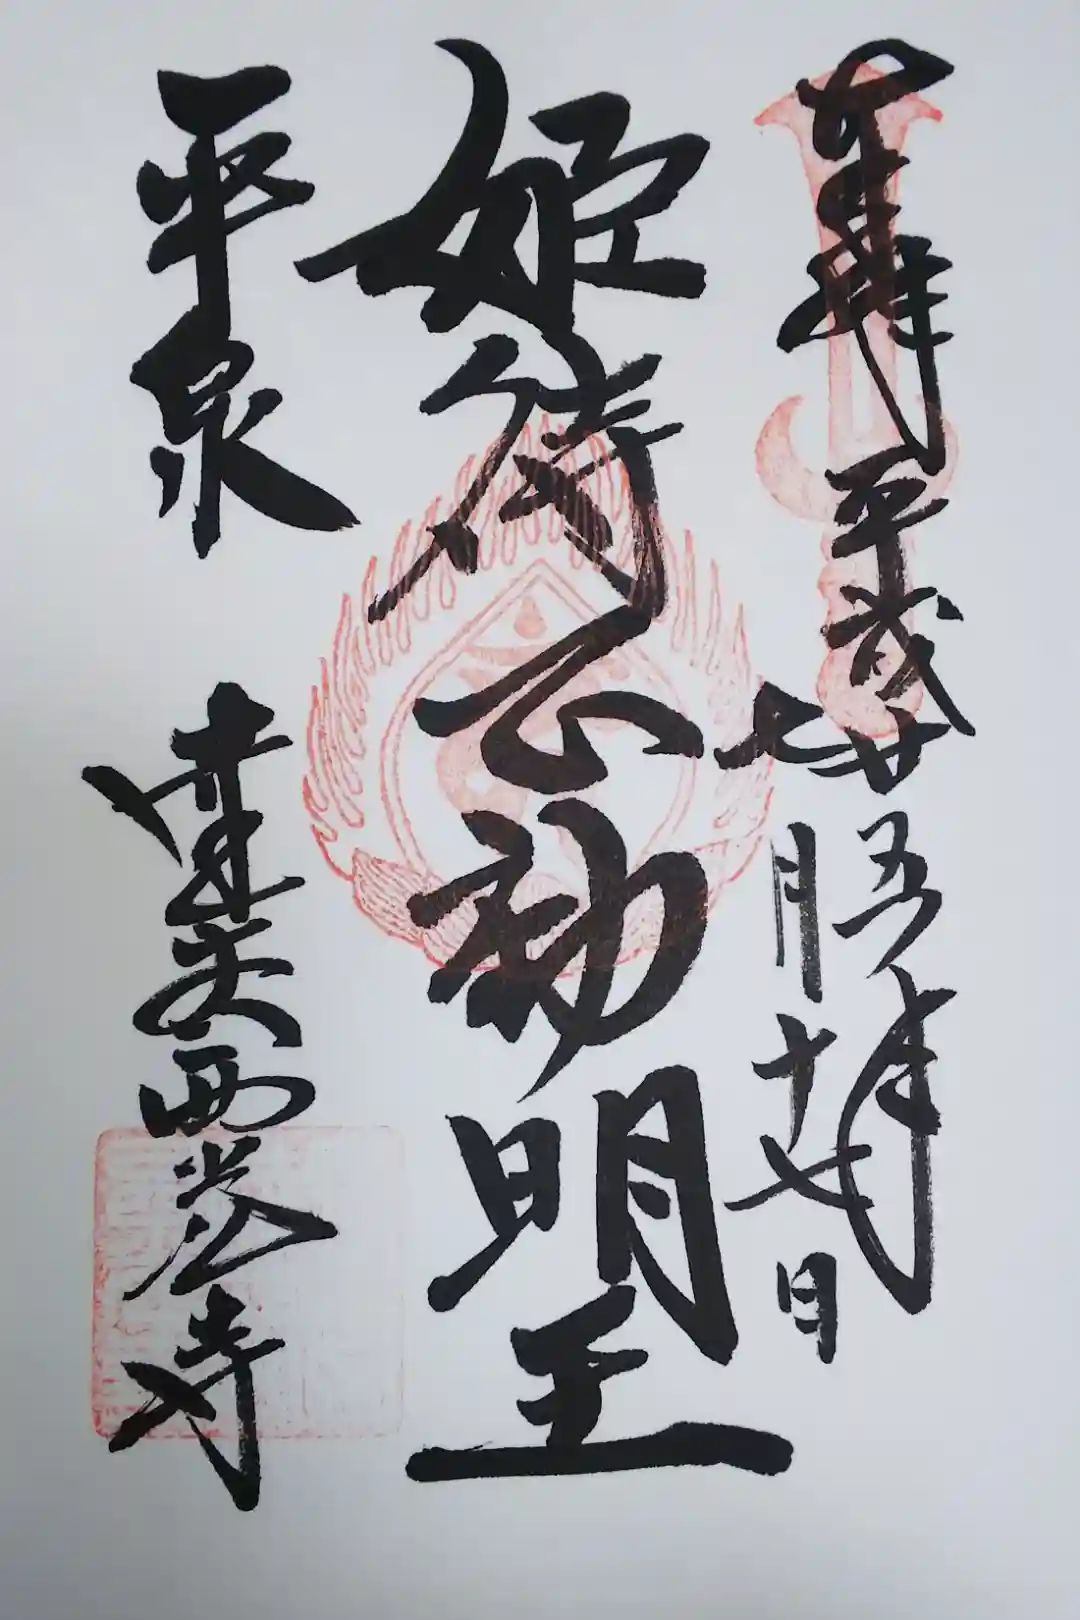 奉拜 平成廿五年
七月十七日
姫待不動明王
平泉 達谷西光寺